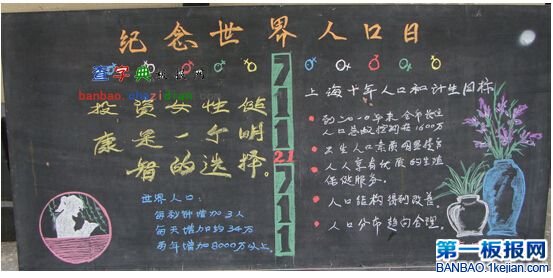 纪念世界人口日
查字典板报网
banbao.chazidian.com
投资女性健
康是一个明
智的选择。
世界人口：
每秒钟增加3人
每天增加约34万
年增加8000万以上
7
1
1
21
7
1
1
上海十年人口和计生目标
到2010年末全市
人口总数控制在1600万
出生人口素质明显提高
人人享有优质的生殖
保健服务。
人口结构得到改善。
人口分布趋向合理。
第一板报网
BANBAO.1kejian.com